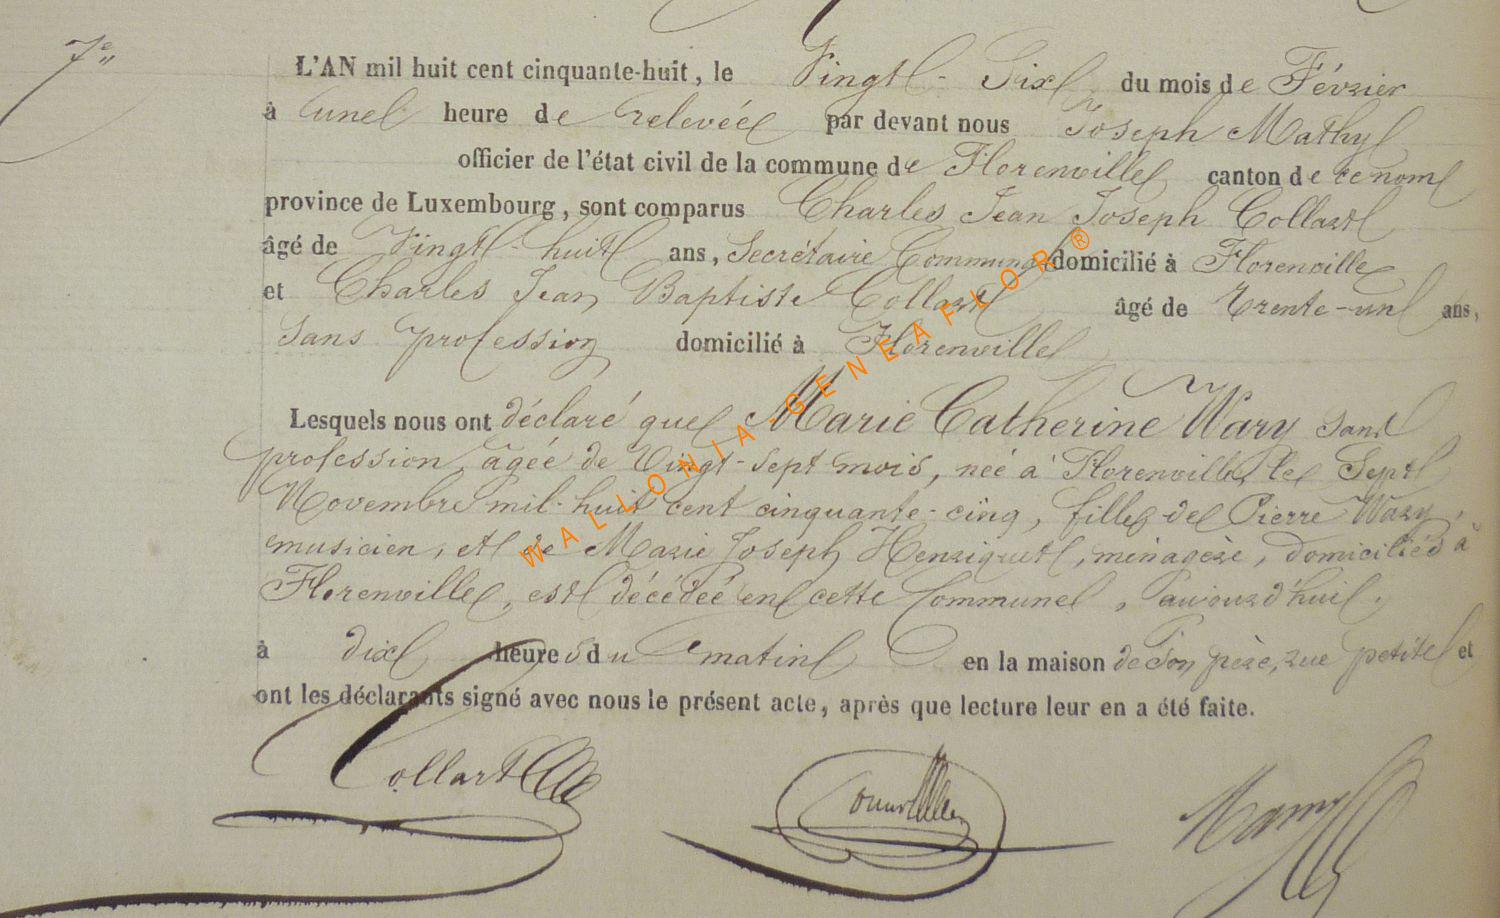 7e
L'AN mil huit cent cinquante-huit, le Vingt-Six du mois de Février
à une heure de relevée par devant nous Joseph Mathy
officier de l'état civil de la commune de Florenville canton de ce nom
province de Luxembourg, sont comparus Charles Jean Joseph Collart
âgé de Vingt-huit ans, Secrétaire Communal domicilié à Florenville
et Charles Jean Baptiste Collart âgé de Trente-un ans,
Sans profession domicilié à Florenville
Lesquels nous ont déclaré que Marie Catherine Wary Sans
profession, agée de Vingt-Sept mois, neé à Florenville, le Sept
Novembre mil-huit cent cinquante-cinq, fille de Pierre Wary,
musicien, et de Marie Joseph Henriquet, ménagère, domiciliés à
Florenville, est décédée en cette Commune, aujourd'hui,
à dix heures du matin en la maison de Son père, rue petite et
ont les déclarants signé avec nous le présent acte, après que lecture leur en a été faite.
Collart
WALLONIA-GENEAFLOR®